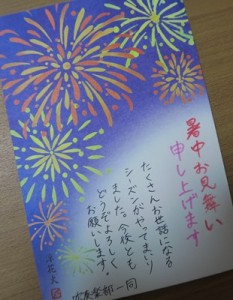 暑中お見舞い
申し上げます
たくさんお世話になる
シーズンがやってまいり
ました。今後とも
どうぞよろしく
お願いします。
吹奏楽部一同